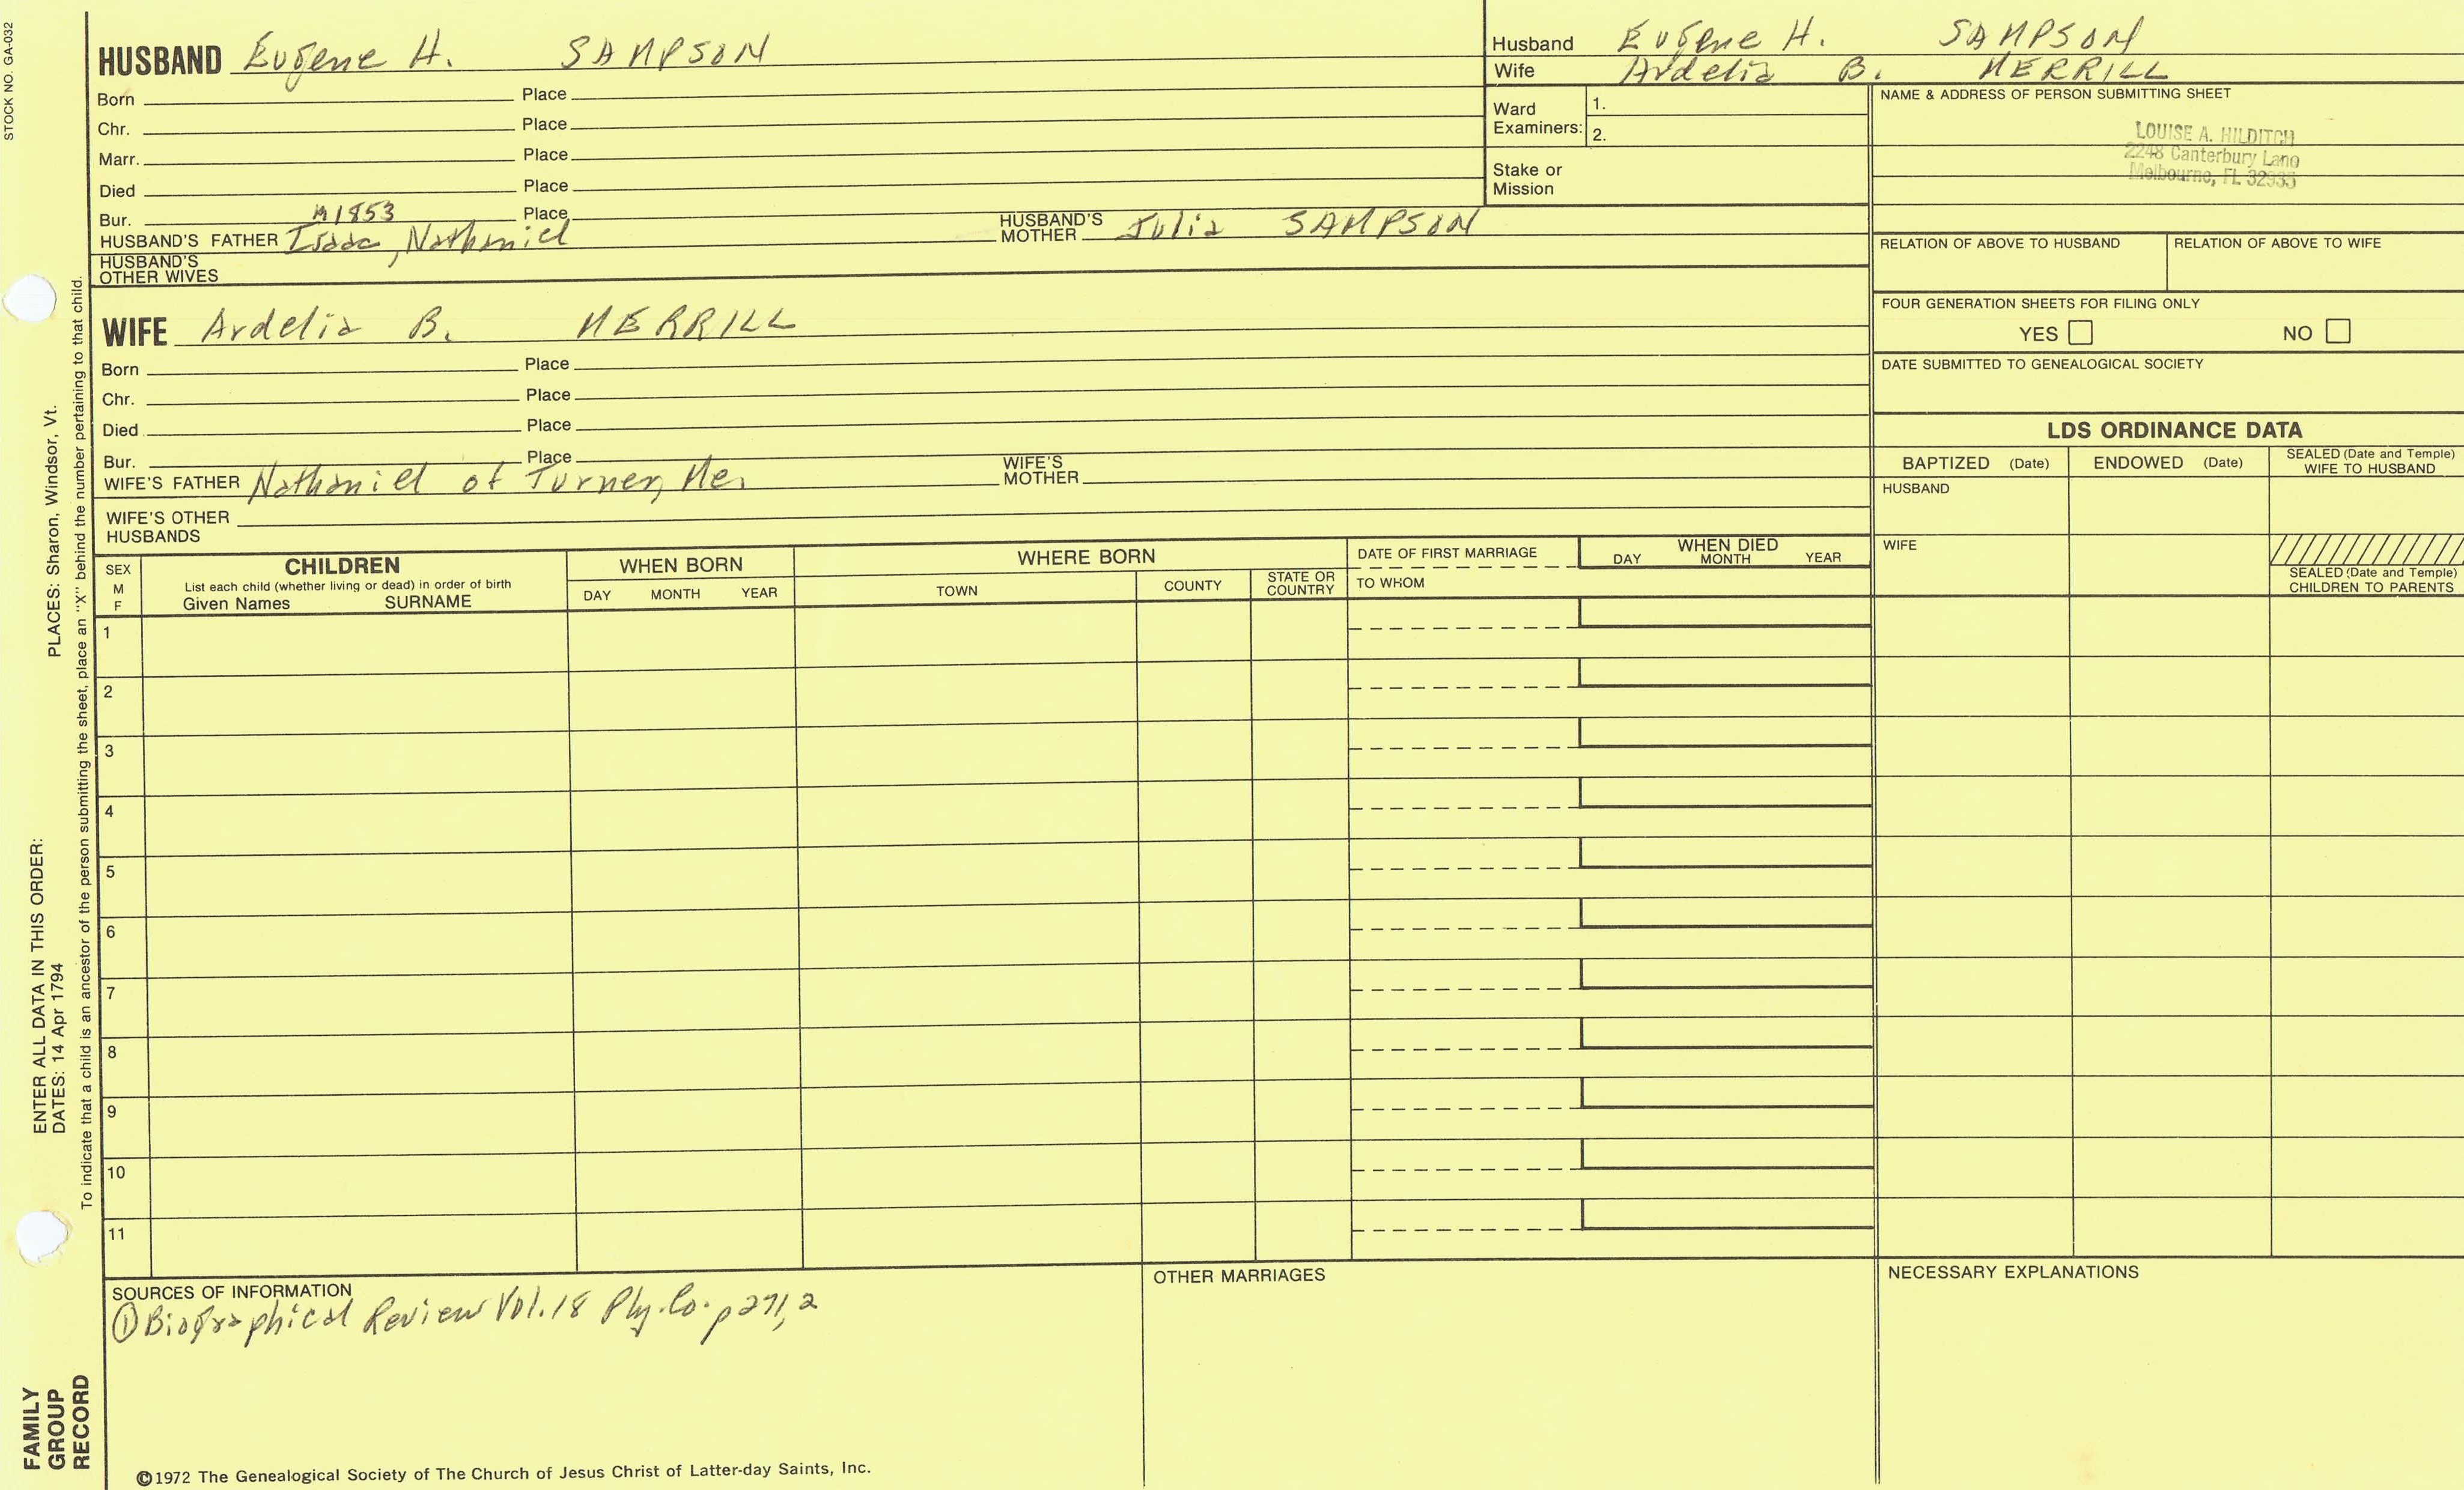 STOCK NO. GA-032
HUSBAND Eugene H. SAMPSON
Born Place
Chr. Place
Marr. Place
Died Place
Bur. Place
m 1853
HUSBAND'S FATHER Isaac, Nathaniel HUSBAND'S MOTHER Julia SAMPSON
HUSBAND'S OTHER WIVES
WIFE Ardelia B. MERRILL
Born Place
Chr. Place
Died Place
Bur. Place
WIFE'S FATHER Nathaniel of Turner, Me. WIFE'S MOTHER
WIFE'S OTHER HUSBANDS
Husband Eugene H. SAMPSON
Wife Ardelia B. MERRILL
Ward Examiners: 1.
2.
Stake or Mission
NAME & ADDRESS OF PERSON SUBMITTING SHEET
LOUISE A. HILDITCH
2248 Canterbury Lane
Melbourne, FL 32935
RELATION OF ABOVE TO HUSBAND RELATION OF ABOVE TO WIFE
FOUR GENERATION SHEETS FOR FILING ONLY
YES NO
DATE SUBMITTED TO GENEALOGICAL SOCIETY
LDS ORDINANCE DATA
BAPTIZED (Date) ENDOWED (Date) SEALED (Date and Temple) WIFE TO HUSBAND
HUSBAND
WIFE
SEALED (Date and Temple) CHILDREN TO PARENTS
SEX M F
CHILDREN
List each child (whether living or dead) in order of birth
Given Names SURNAME
WHEN BORN
DAY MONTH YEAR
WHERE BORN
TOWN COUNTY STATE OR COUNTRY
DATE OF FIRST MARRIAGE
TO WHOM
WHEN DIED
DAY MONTH YEAR
1
2
3
4
5
6
7
8
9
10
11
SOURCES OF INFORMATION
① Biographical Review Vol. 18 Ply. Co. p 271, 2
OTHER MARRIAGES
NECESSARY EXPLANATIONS
©1972 The Genealogical Society of The Church of Jesus Christ of Latter-day Saints, Inc.
FAMILY GROUP RECORD
ENTER ALL DATA IN THIS ORDER:
DATES: 14 Apr 1794 PLACES: Sharon, Windsor, Vt.
To indicate that a child is an ancestor of the person submitting the sheet, place an "X" behind the number pertaining to that child.